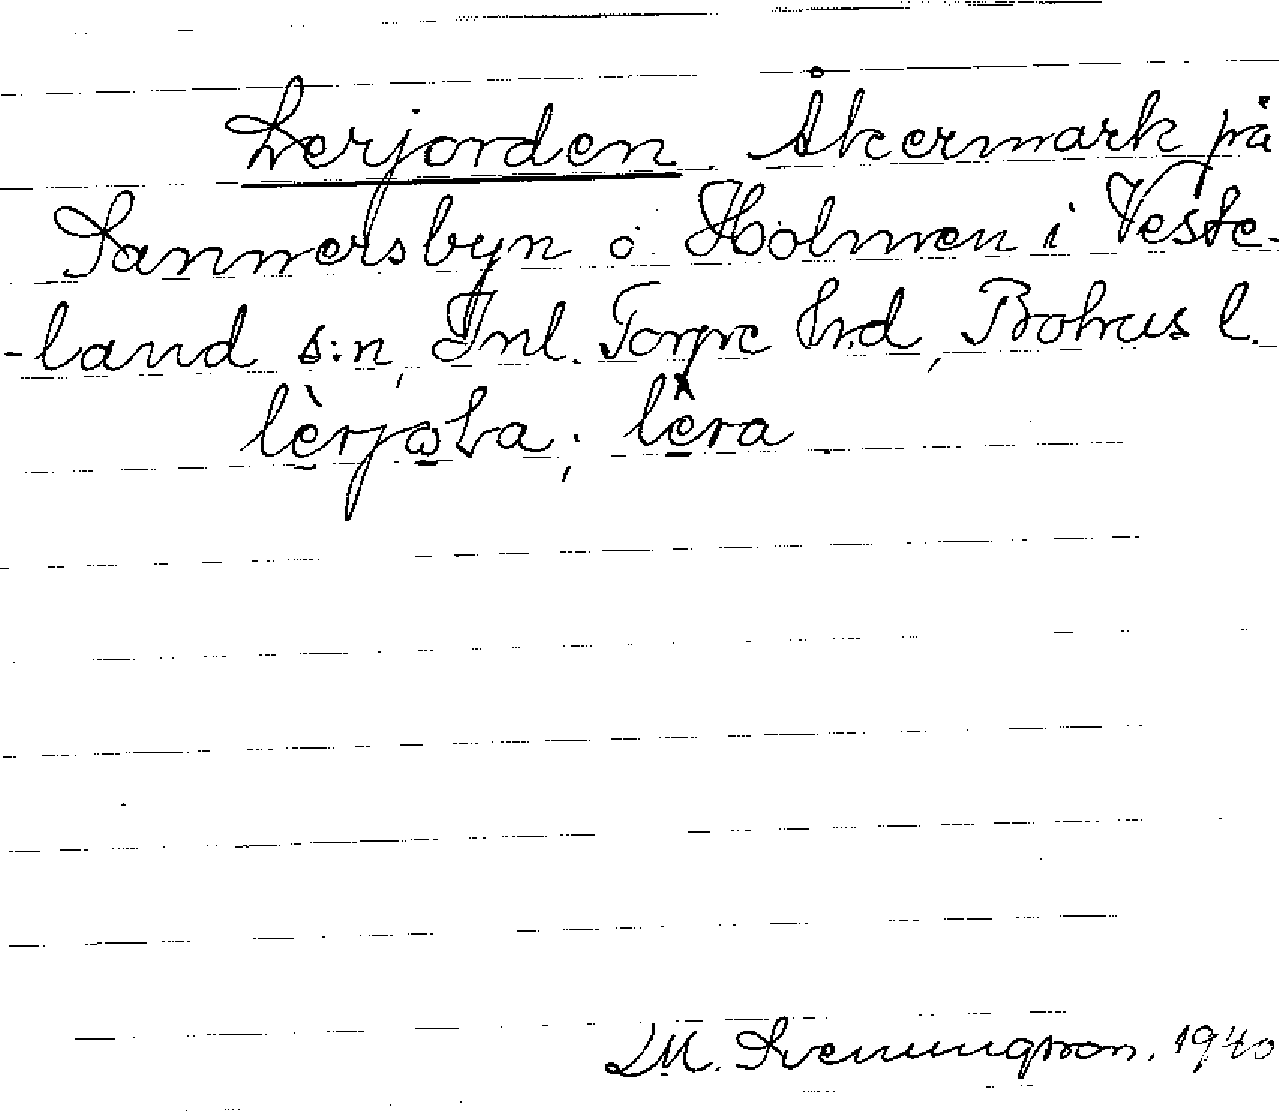 Lerjorden. Åkermark på
Sannersbyn o Holmen i Veste-
-land s:n, Inl. Torpe hrd, Bohus l.
lèrjoLa; lêra
LM. Svenungsson. 1940